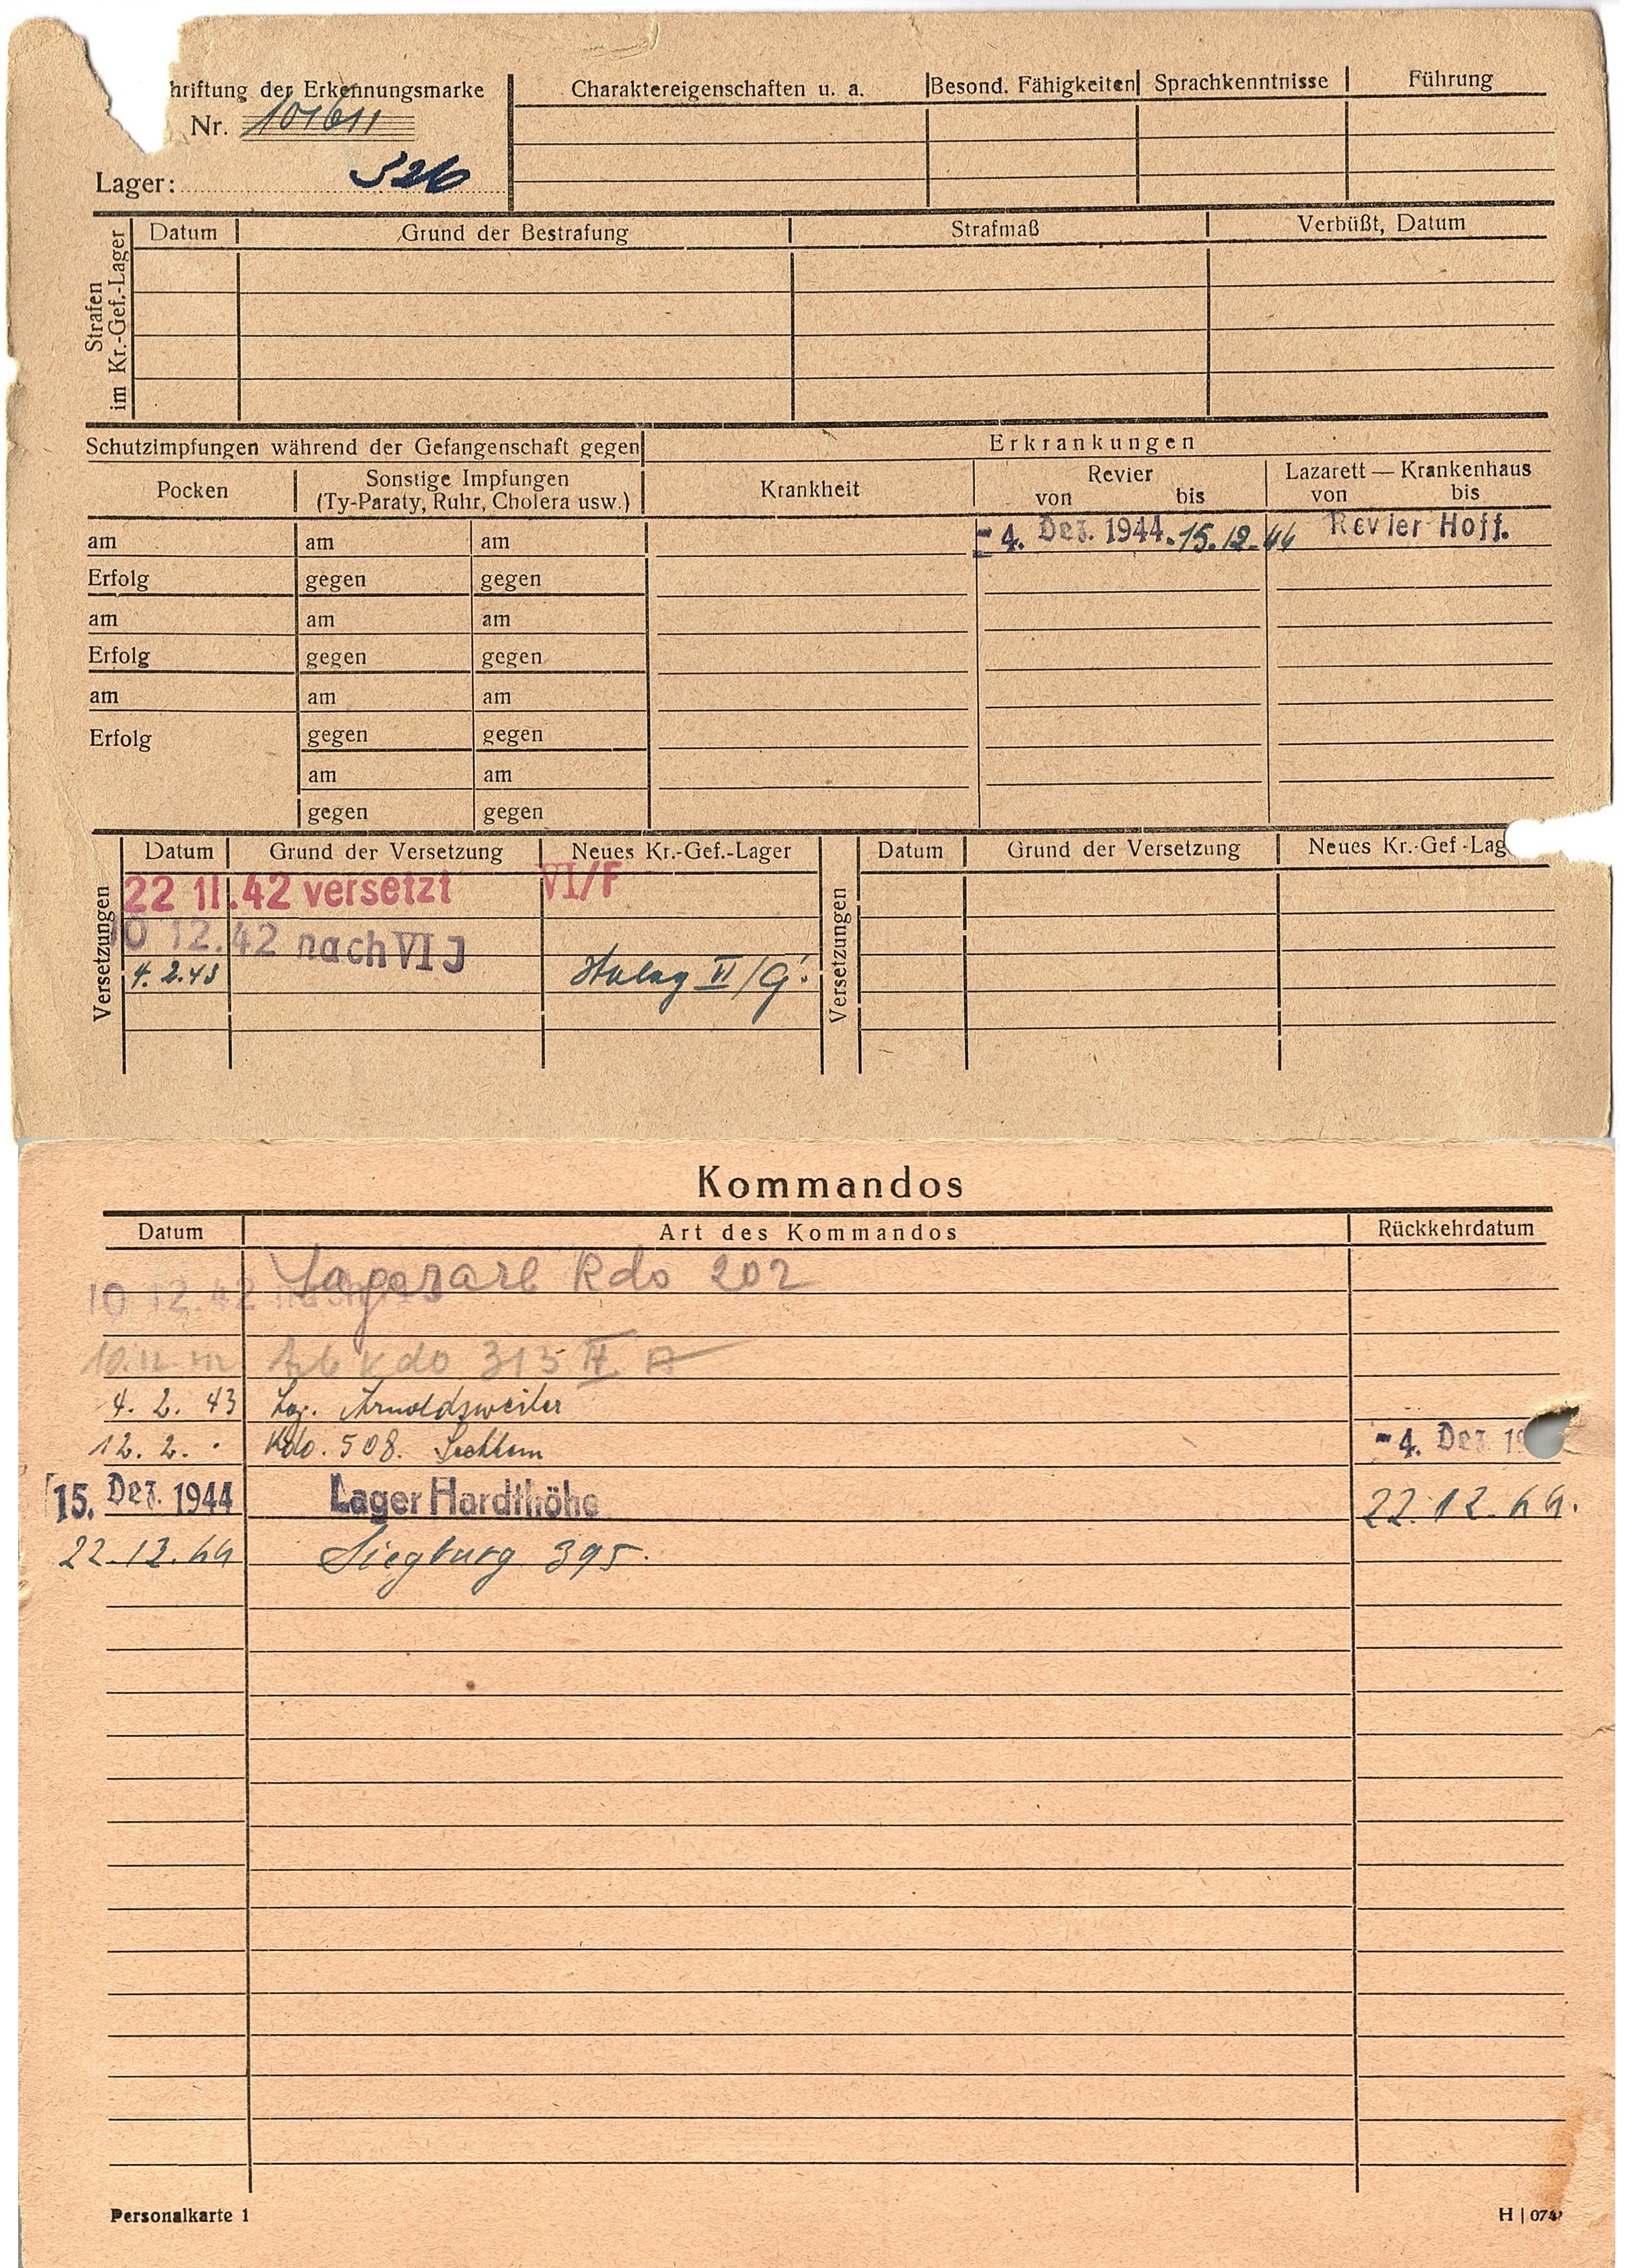 hriftung der Erkennungsmarke
Nr. 101611
Lager: 326
Charaktereigenschaften u. a. Besond. Fähigkeiten Sprachkenntnisse Führung
Strafen
im Kr.-Gef.-Lager
Datum Grund der Bestrafung Strafmaß Verbüßt, Datum
Schutzimpfungen während der Gefangenschaft gegen Erkrankungen
Pocken Sonstige Impfungen
(Ty-Paraty, Ruhr, Cholera usw.)
Krankheit Revier
von bis
Lazarett — Krankenhaus
von bis
am am am - 4. Dez. 1944. 15.12.44 Revier Hoff.
Erfolg gegen gegen
am am am
Erfolg gegen gegen
am am am
Erfolg gegen gegen
am am
gegen gegen
Versetzungen
Datum Grund der Versetzung Neues Kr.-Gef.-Lager
22 11.42 versetzt VI/F
10 12.42 nach VI J
4.2.43 Stalag VI/G.
Versetzungen
Datum Grund der Versetzung Neues Kr.-Gef-Lag
Kommandos
Datum Art des Kommandos Rückkehrdatum
10 12.42 Lagerarb Kdo 202
Arb Kdo 313
4. 2. 43 Lag. Arnoldsweiler
12. 2. Kdo. 508. Sechtem - 4. Dez 19
15. Dez. 1944 Lager Hardthöhe 22.12.44.
22.12.44 Siegburg 395.
Personalkarte 1 H | 074